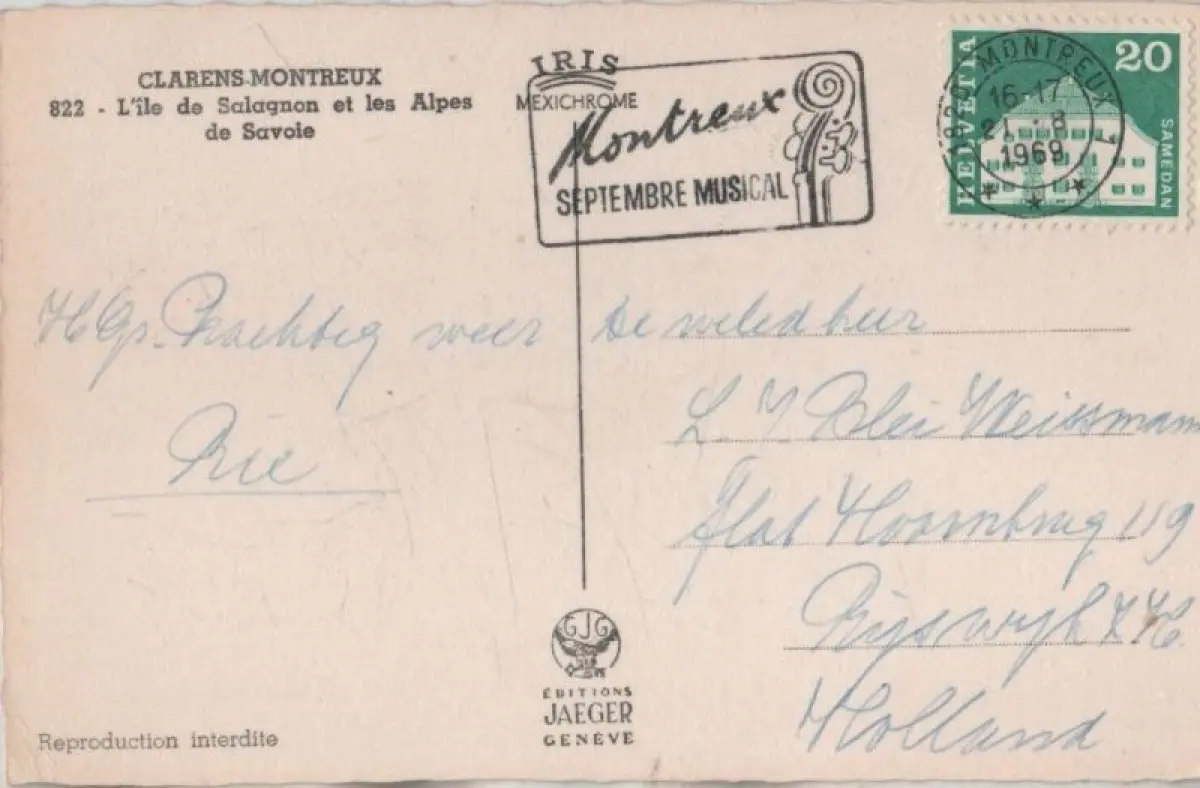 CLARENS-MONTREUX
822 - L'île de Salagnon et les Alpes
de Savoie
IRIS
MEXICHROME
Montreux
SEPTEMBRE MUSICAL
1820 MONTREUX 1
16-17
21.-8
1969
HELVETIA
20
SAMEDAN
H Gr. Prachtig weer
Rie
De weled heer
L. J. Blei Weissmann
flat Hoornbrug 119
Rijswijk Z H.
Holland
GJG
ÉDITIONS
JAEGER
GENÈVE
Reproduction interdite